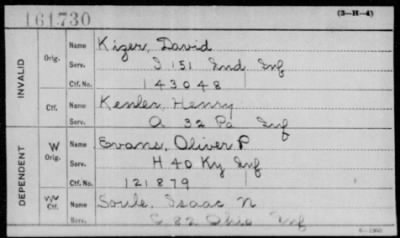 161730
(3-H-4)
INVALID
Orig.
Name Kizer, David
Serv. I 151 Ind Inf
Ctf. No. 143048
Ctf.
Name Kenler, Henry
Serv. A 32 Pa Inf
DEPENDENT
W Orig.
Name Evans, Oliver P
Serv. H 40 Ky Inf
Ctf. No. 121879
Ctf.
Name Soule, Isaac N
Serv. C 82 Ohio Inf